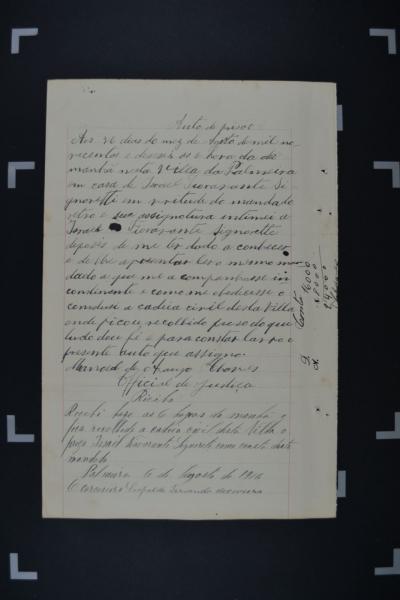 Auto de prisão
Aos 26 dias do mez de Agosto de mil no-
vecentos e dezeseis as 6 hora da da
manhã nesta Villa da Palmeira
em casa de Israel Fioravante Si-
gnoretti em virtude do mandado
retro e sua assignatura intimei a
Israel Fioravante Signorette
depois de me ter dado a conhecer
e de lhe apresentar lero mesmo man
dado a que me acompanhasse in
continente e como me obdecesse o
condusi a cadeia civil desta Villa
onde ficou recolhido preso do que
tudo dou fé e para constar lavro o
presente auto que assigno.
Manoel de Araujo Chaves
Official de Justiça
Recibo
Recebi hoje as 6 horas da manhã e
fica recolhido a cadeia civil desta Villa o
preso Israel Fioravante Signorete como consta deste
mandado
Palmeira 6 de Agosto de 1916
O carcereiro Leopoldo Fernando
Conta 6000